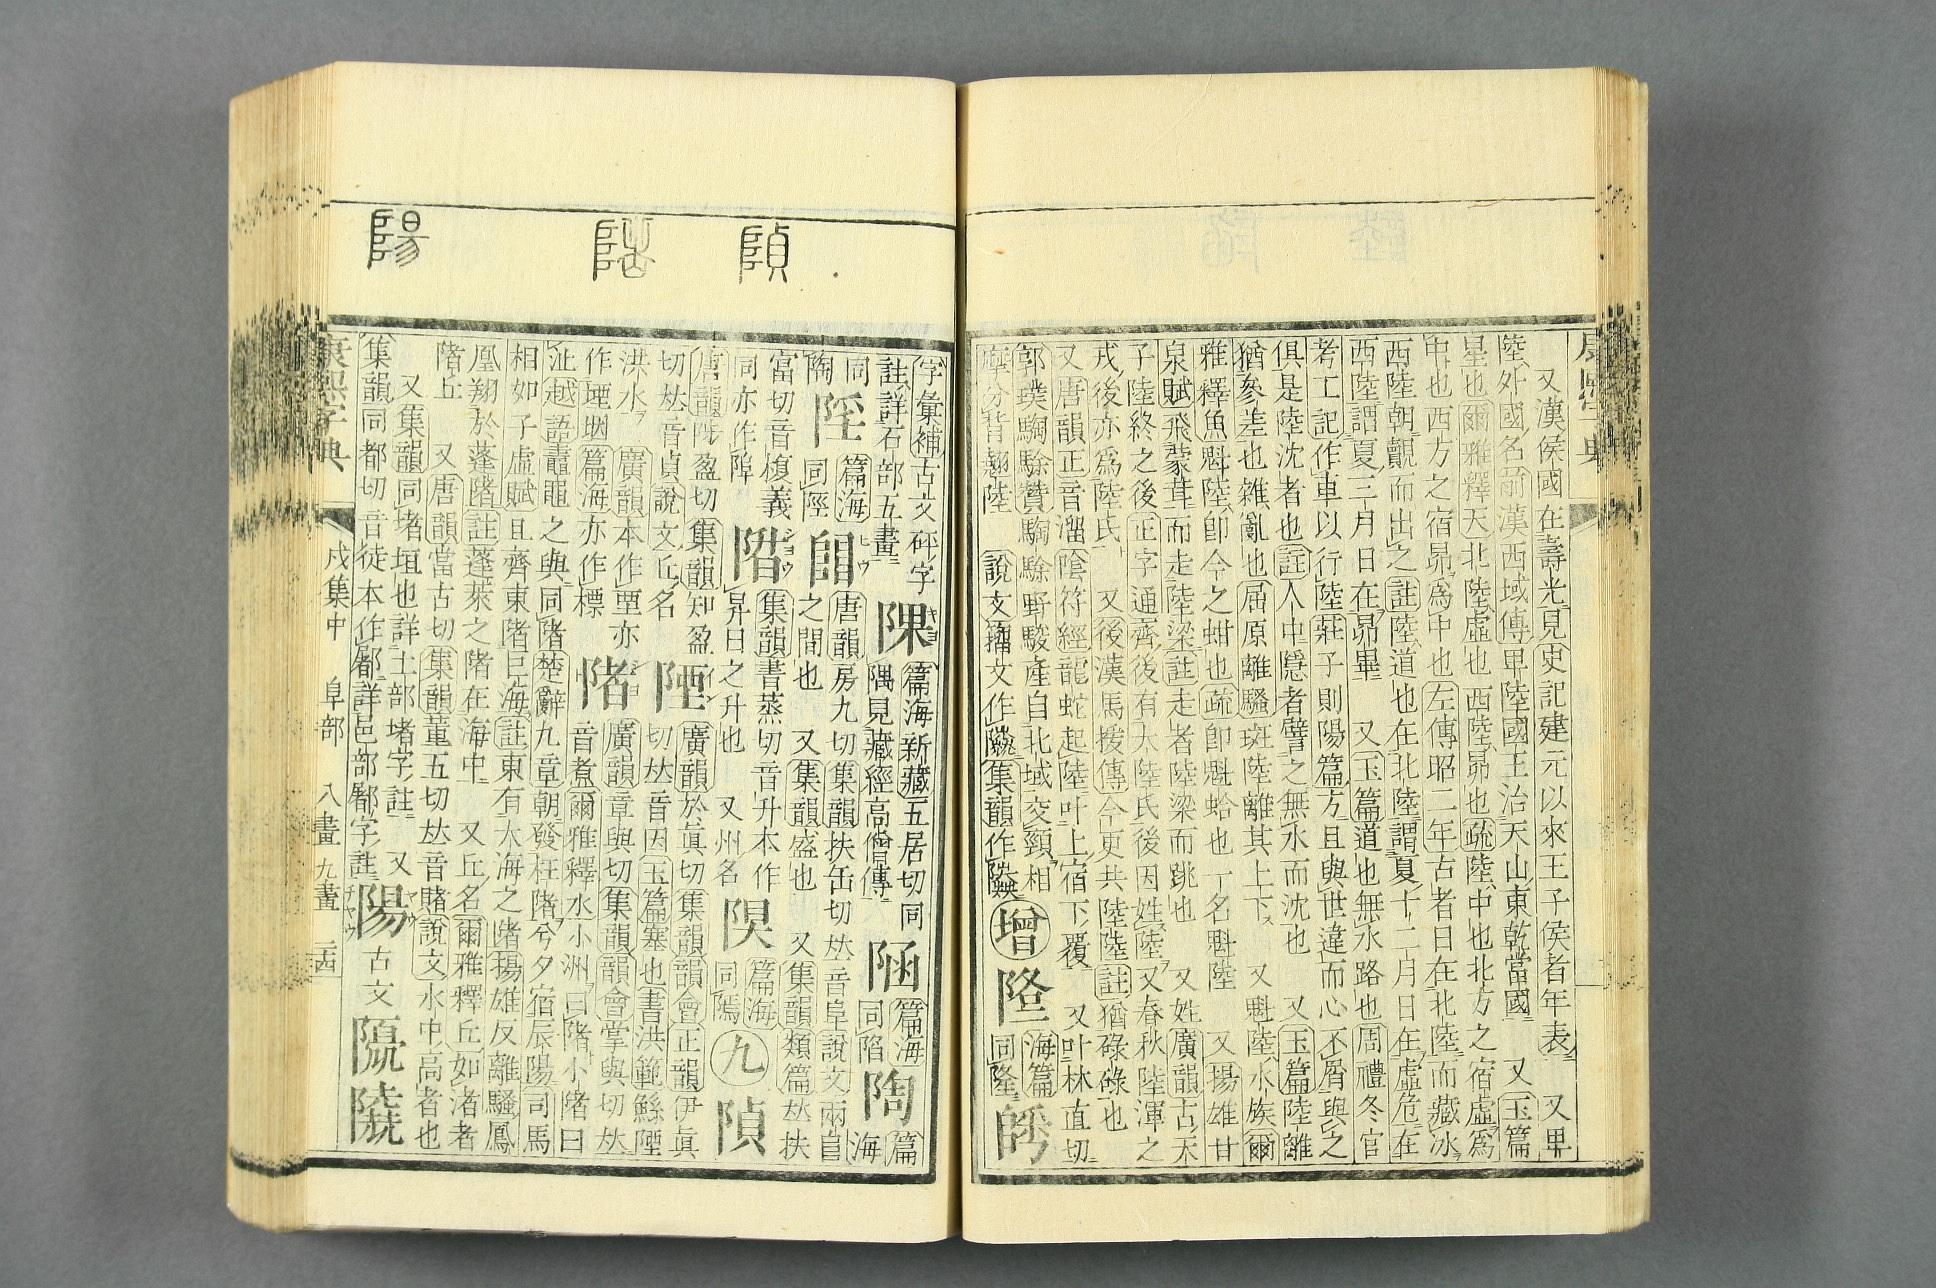 又漢侯國在壽光見史記建元以來王子侯者年表 又畢
陸外國名前漢西域傳卑陸國王治天山東乾當國 又玉篇
星也爾雅釋天北陸虛也西陸昴也疏陸中也北方之宿虛爲
中也西方之宿昴爲中也左傳昭二年古者日在北陸而藏冰
西陸朝覿而出之註陸道也在北陸謂夏十二月日在虛危在
西陸謂夏三月日在昴畢 又玉篇道也無水路也周禮冬官
考工記作車以行陸莊子則陽篇方且與世違而心不屑與之
俱是陸沈者也註人中隱者譬之無水而沈也 又玉篇陸離
猶參差也雜亂也屈原離騷斑陸離其上下 又魁陸水族爾
雅釋魚魁陸卽今之蚶也疏卽魁蛤也一名魁陸 又揚雄甘
泉賦飛蒙茸而走陸梁註走者陸梁而跳也 又姓廣韻古天
子陸終之後正字通齊後有大陸氏後因姓陸 又春秋陸渾之
戎後亦爲陸氏 又後漢馬援傳今更共陸陸註猶碌碌也
又唐韻正音溜陰符經龍蛇起陸叶上宿下覆 又叶林直切
郭璞騊駼贊騊駼野駿產自北域交頸相
摩分背翹陸 說文籒文作 集韻作 增 隆 海篇同隆
字彙補古文硑字
註詳石部五畫 陳 篇海新藏五居切同隅見藏經高僧傳 𨹗 篇海同陷 陶 篇海
同陶 陘 篇海同陘 𨺅 唐韻房九切集韻扶缶切𠀤音阜說文兩𨸏
之間也 又集韻盛也 又集韻類篇𠀤扶
富切音復義
同亦作 陹 集韻書蒸切音升本作
昇日之升也 又州名 隕 篇海同隝 九 隕
唐韻陟盈切集韻知盈
切𠀤音貞說文丘名 陻 廣韻於眞切集韻韻會正韻伊眞
切𠀤音因玉篇塞也書洪範鯀陻
洪水 廣韻本作垔亦
作堙𡎳篇海亦作標 陼 廣韻章與切集韻韻會掌與切𠀤
音煮爾雅釋水小洲曰陼小陼曰
沚越語黿鼉之與同陼楚辭九章朝發枉陼兮夕宿辰陽司馬
相如子虛賦且齊東陼巨海註東有大海之陼揚雄反離騷鳳
凰翔於蓬陼註蓬萊之陼在海中 又丘名爾雅釋丘如渚者
陼丘 又唐韻當古切集韻董五切𠀤音賭說文水中高者也
又集韻同堵垣也詳土部堵字註 又
集韻同都切音徒本作鄌詳邑部鄌字註 陽 古文
康熙字典 戌集中 阜部 八畫 九畫